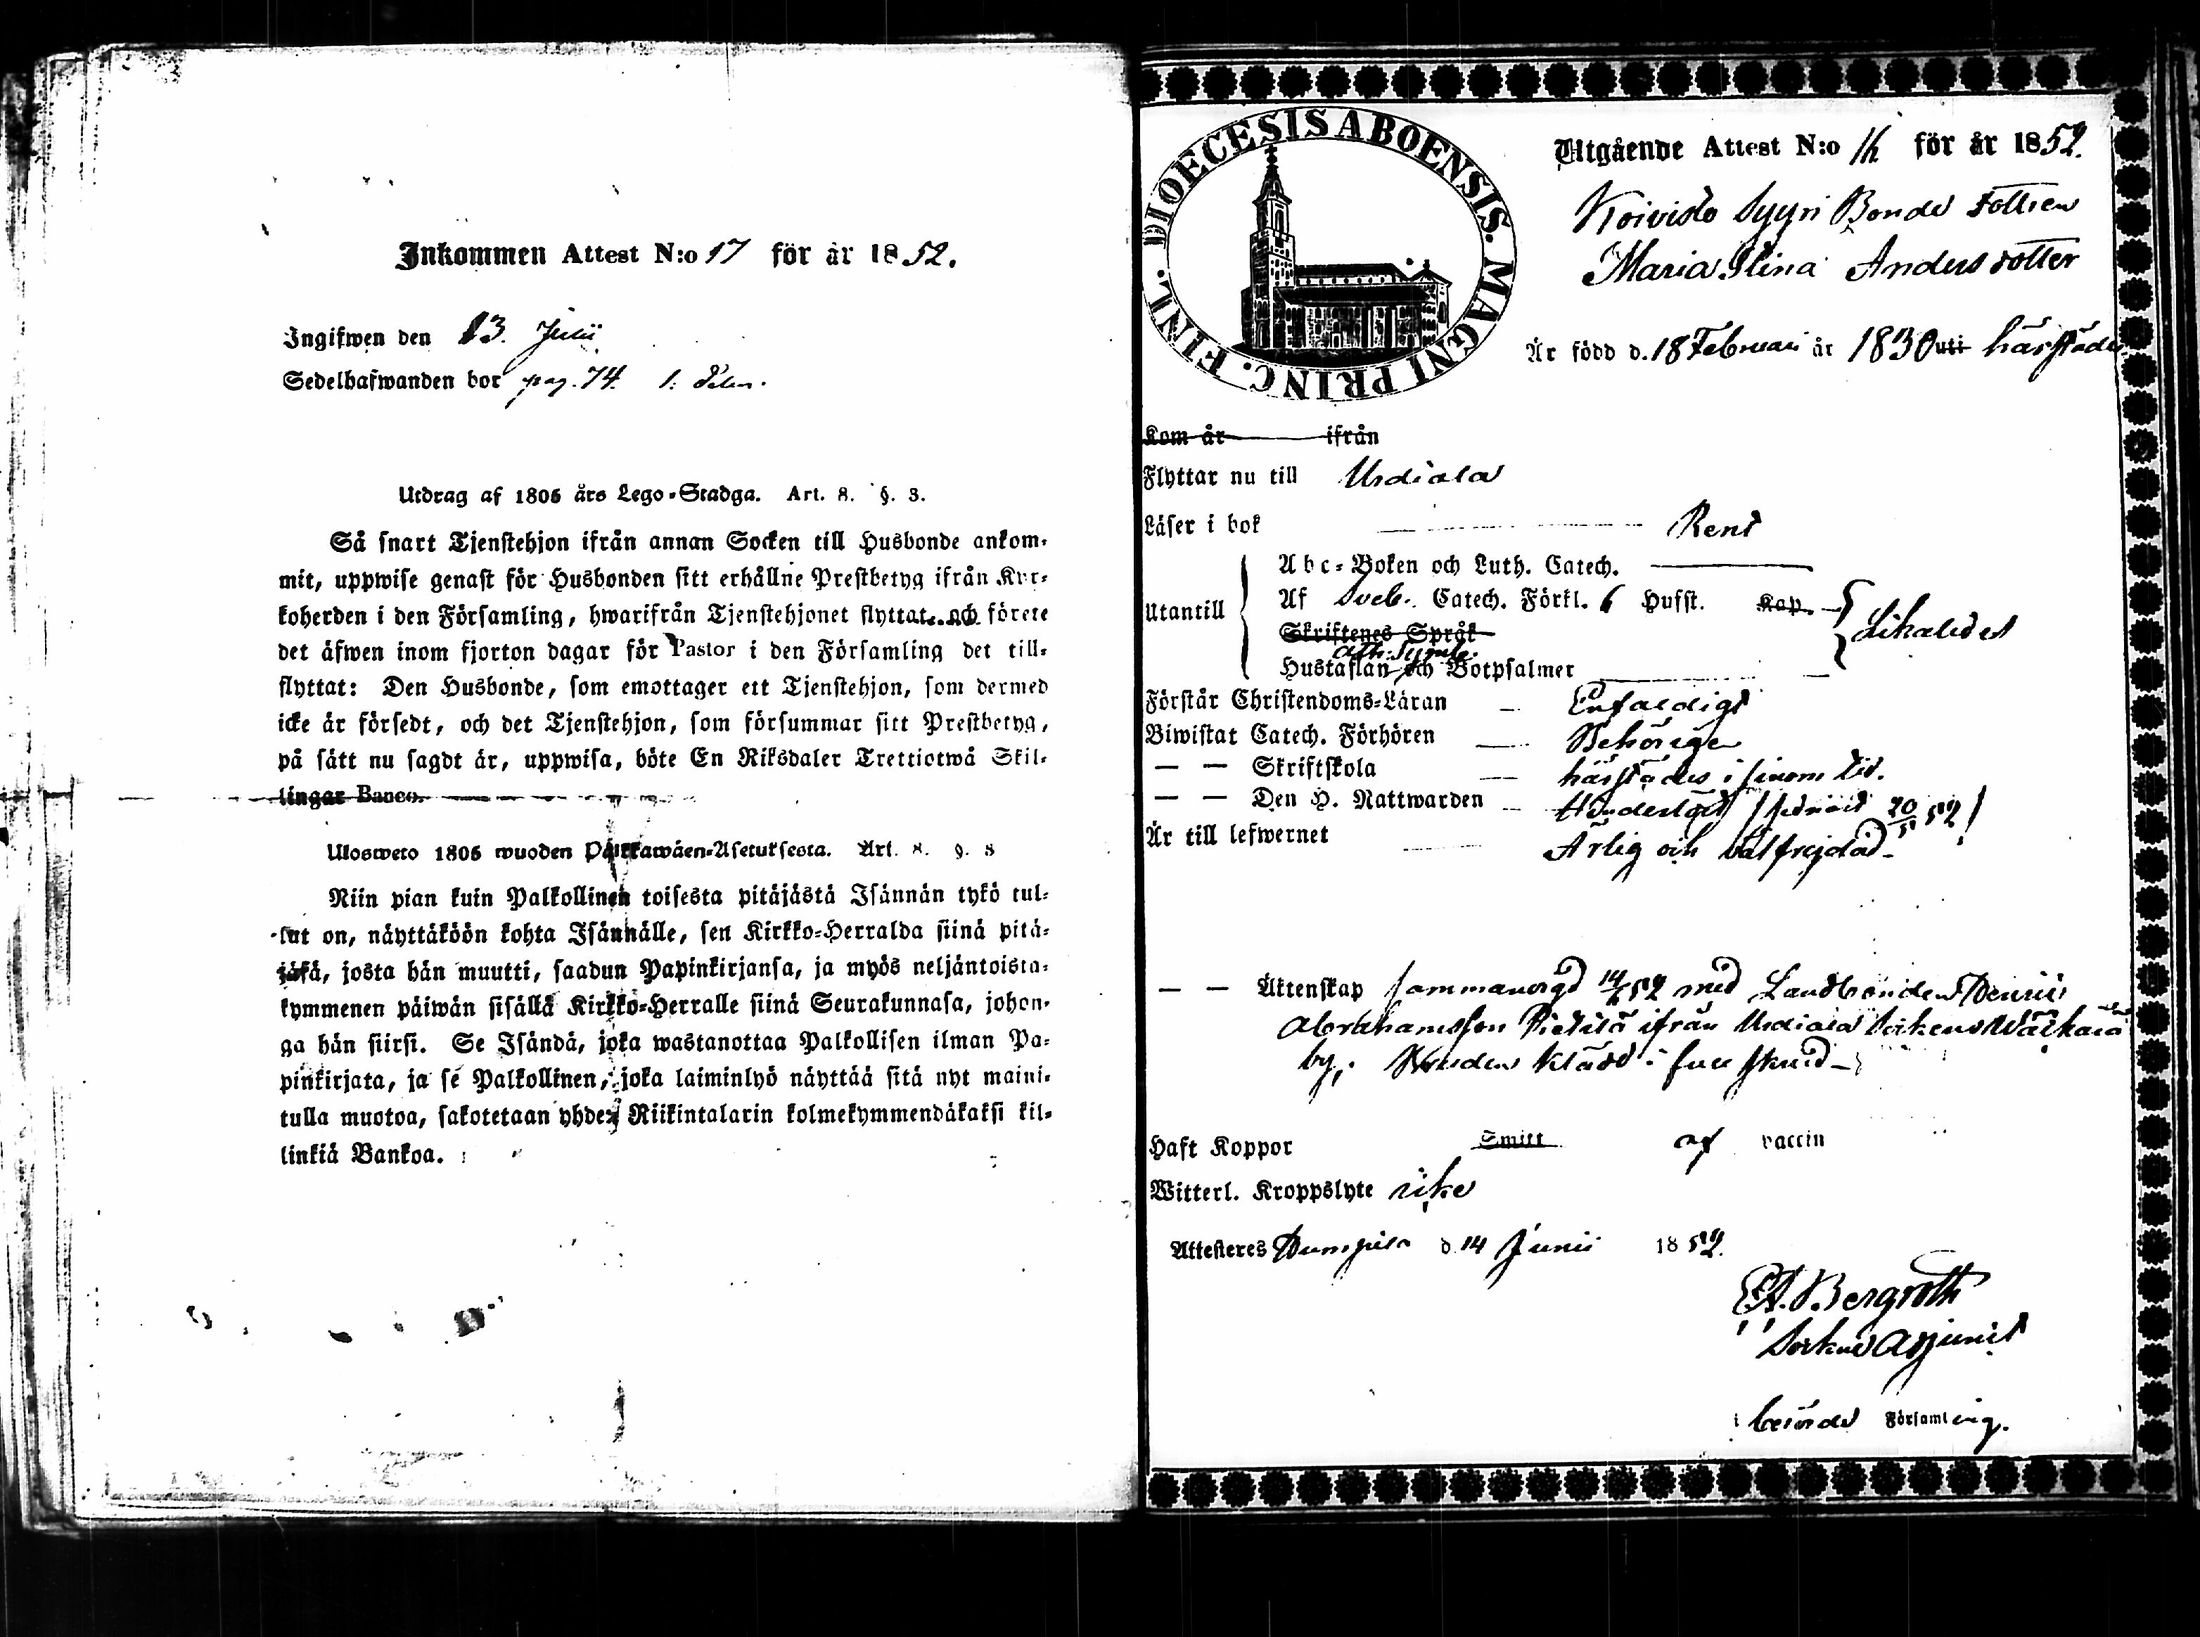 Inkommen Attest N:o 17 för år 1852.
Ingifwen den 13. Julii
Sedelhafwanden bor pag. 74. 1. Delen.
Utdrag af 1805 års Lego-Stadga. Art. 8. §. 3.
Så snart Tjenstehjon ifrån annan Socken till Husbonde ankom-
mit, uppwise genast för Husbonden sitt erhållne Prestbetyg ifrån Kyr-
koherden i den Församling, hwarifrån Tjenstehjonet flyttat, och förete
det äfwen inom fjorton dagar för Pastor i den Församling det till-
flyttat: Den Husbonde, som emottager ett Tjenstehjon, som dermed
icke är försedt, och det Tjenstehjon, som försummar sitt Prestbetyg,
på sätt nu sagdt är, uppwisa, böte En Riksdaler Trettiotwå Skil-
lingar Banco.
Ulosweto 1805 wuoden Palkkawäen-Asetuksesta. Art. 8. §. 3
Niin pian kuin Palkollinen toisesta pitäjästä Isännän tykö tul-
lut on, näyttäköön kohta Isännälle, sen Kirkko-Herralda siinä pitä-
jäsä, josta hän muutti, saadun Papinkirjansa, ja myös neljäntoista-
kymmenen päiwän sisällä Kirkko-Herralle siinä Seurakunnasa, johon-
ga hän siirsi. Se Isändä, joka wastanottaa Palkollisen ilman Pa-
pinkirjata, ja se Palkollinen, joka laiminlyö näyttää sitä nyt maini-
tulla muotoa, sakotetaan yhden Riikintalarin kolmekymmendäkaksi kil-
linkiä Bankoa.
DIOECESIS ABOENSIS. MAGNI PRINC. FINL.
Utgående Attest N:o 16 för år 1852.
Koivisto Syyri Bonde dottren
Maria Stina Andersdotter
Är född d. 18 Februari år 1830 uti härstädes
Kom år ifrån
Flyttar nu till Urdiala
Läser i bok Rent
Abc-Boken och Luth. Catech.
Utantill Af Sveb. Catech. Förkl. 6 Hufst. Kap. Likaledes
Skriftenes Språk
Ath: Symb:
Hustaflan och Botpsalmer
Förstår Christendoms-Läran Enfaldigt
Biwistat Catech. Förhören Behörigen
— — Skriftskola härstädes i sinom tid.
— — Den H. Nattwarden 20/5 52
Är till lefwernet Ärlig och välfrejdad
— — Äktenskap sammanvigd 14/6 52 med Landbonden Henric
Abrahamsson Pietilä ifrån Urdiala Sockens
by, Bruden klädd i full skrud
Haft Koppor Smitt af vaccin
Witterl. Kroppslyte icke
Attesteres d. 14 Junii 1852.
Bergroth
Sockne Adjunct
i berörde Församling.